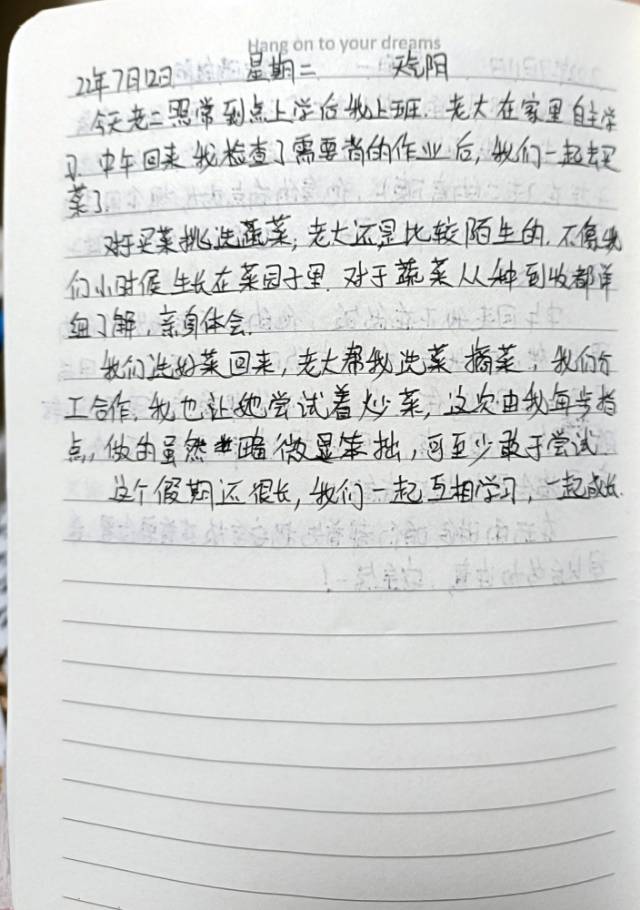 Hang on to your dreams
22年7月12日 星期二 天气阴
今天老二照常到点上学后我上班. 老大在家里自主学
习. 中午回来我检查了需要背的作业后, 我们一起去买
菜了.
对于买菜挑选蔬菜, 老大还是比较陌生的. 不像我
们小时候生长在菜园子里. 对于蔬菜从种到收都详
细了解, 亲身体会.
我们选好菜回来, 老大帮我洗菜摘菜, 我们分
工合作. 我也让她尝试着炒菜, 这次由我每步指
点, 做的虽然略微显笨拙, 可至少敢于尝试.
这个假期还很长, 我们一起互相学习, 一起成长.